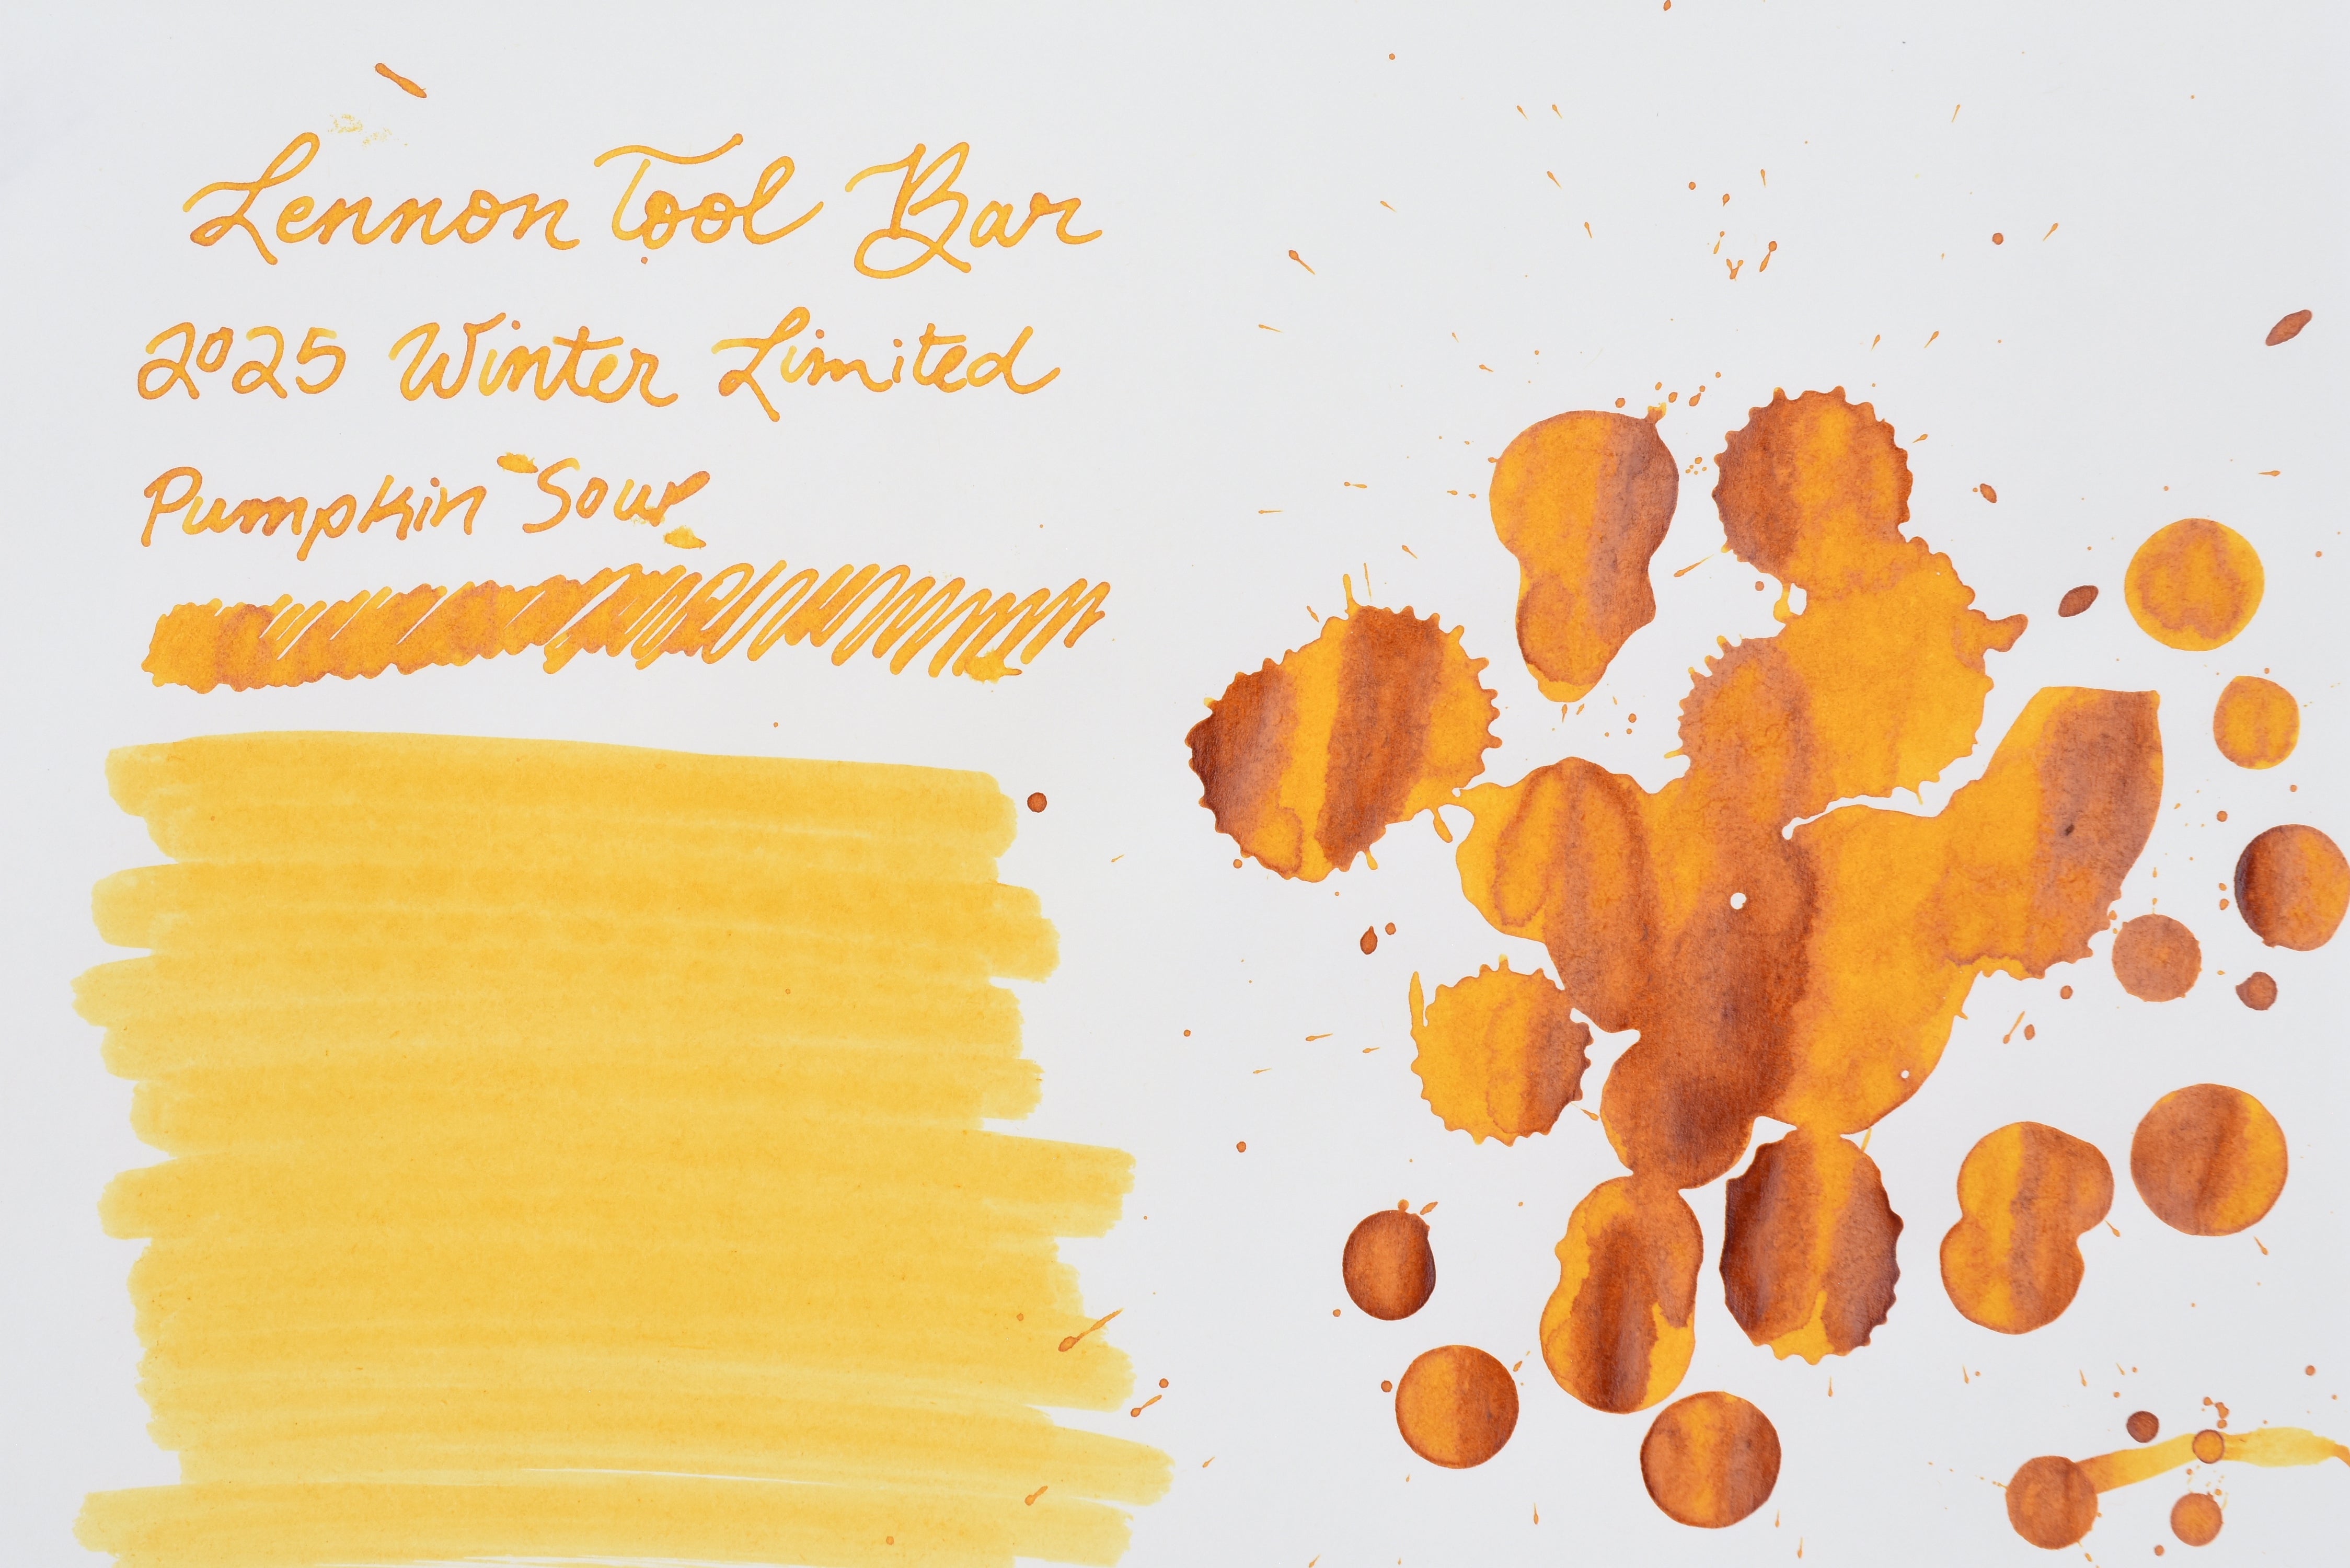 Lennon Tool Bar
2025 Winter Limited
Pumpkin Sour